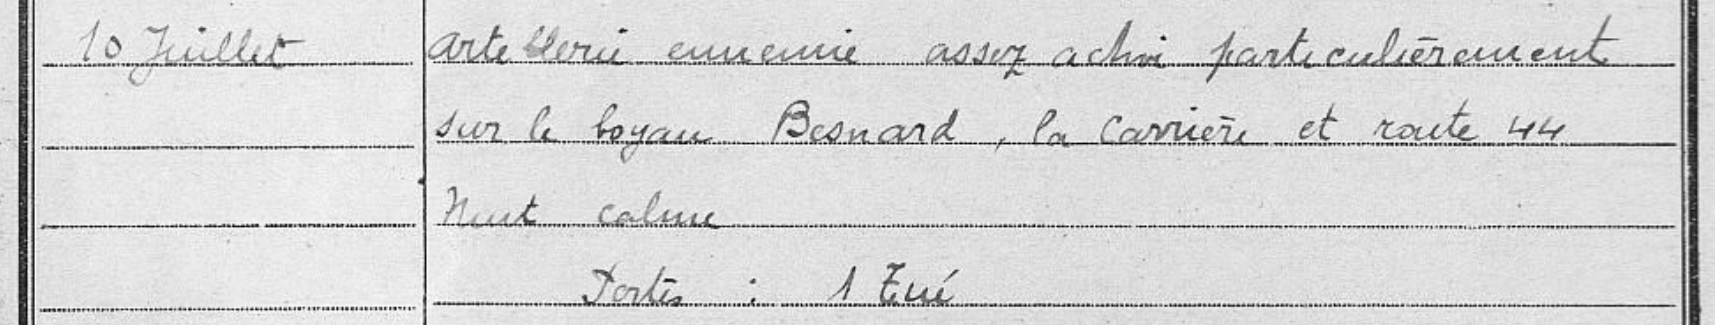 10 Juillet artillerie ennemie assez active particulièrement
sur le boyau Besnard, la Carrière et route 44
Nuit calme
Pertes : 1 Tué